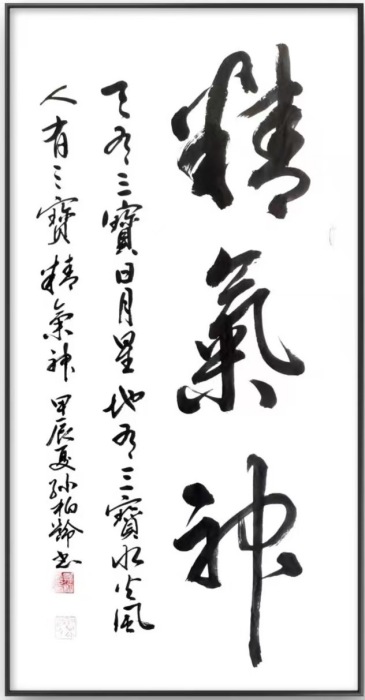 精氣神
天有三寶日月星地有三寶水火風
人有三寶精氣神甲辰夏孫柏齡书